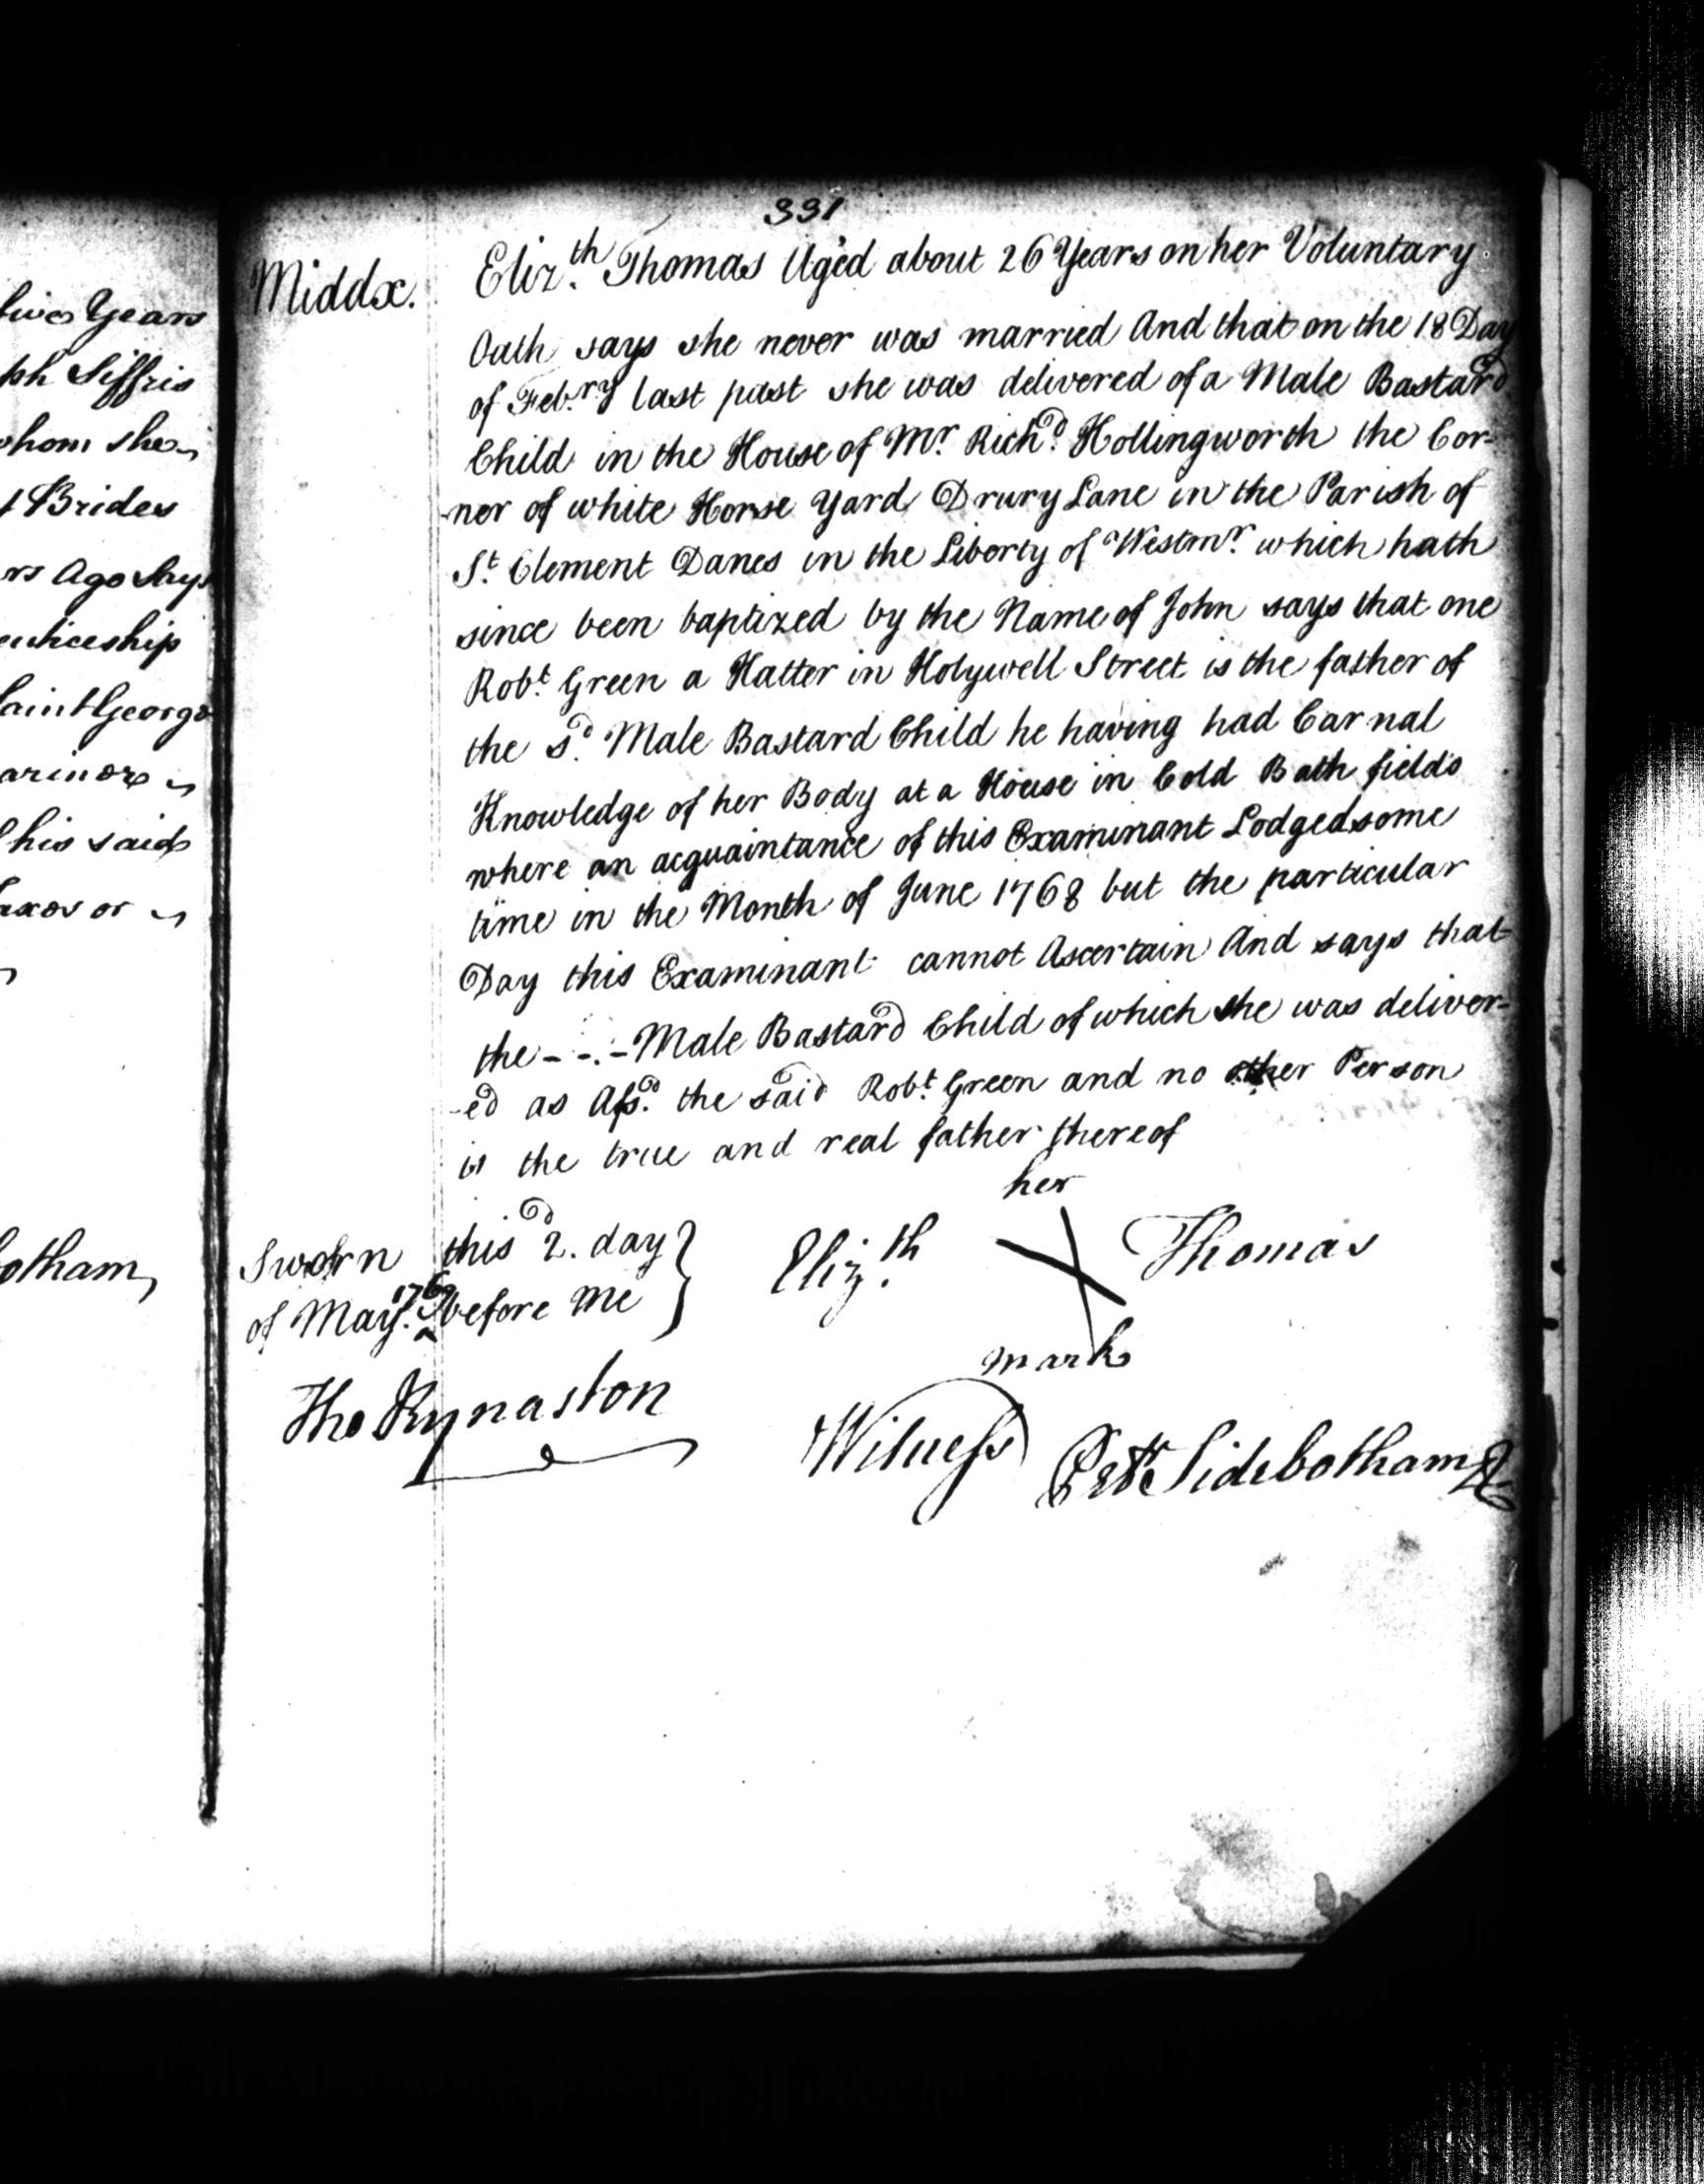 five Years
ph Siffris
whom she
t Brides
rs Ago Says
enticeship
Saint George
ariner
his said
axes or
botham
331
Middx. Eliz.th Thomas Aged about 26 Years on her Voluntary
Oath says she never was married And that on the 18 Day
of Feb.ry last past she was delivered of a Male Bastard
Child in the House of Mr. Rich.d Hollingworth the Cor-
-ner of white Horse Yard Drury Lane in the Parish of
St. Clement Danes in the Liberty of Westmr. which hath
since been baptized by the Name of John says that one
Robt. Green a Hatter in Holywell Street is the father of
the s.d Male Bastard Child he having had Carnal
Knowledge of her Body at a House in Cold Bath fields
where an acquaintance of this Examinant Lodged some
time in the Month of June 1768 but the particular
Day this Examinant cannot Ascertain And says that
the - - . - Male Bastard Child of which she was deliver-
-ed as Afs.d the said Robt. Green and no other Person
is the true and real father thereof
her
Sworn this 2.d day } Eliz.th X Thomas
of May. 1769 before me
mark
Tho Kynaston
Witness Petr Sidebotham